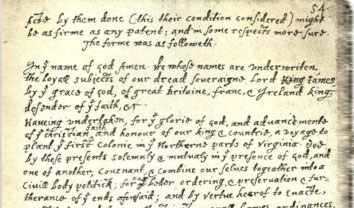 54
Acte by them done (this their condition considered) might
be as firme as any patent; and in some respects more sure.
The forme was as followeth.
In yᵉ name of god Amen. We whose names are underwriten,
the loyall subjects of our dread soveraigne Lord King James
by yᵉ grace of god, of great britaine, franc, & Ireland king,
defender of yᵉ faith, &c
Haveing undertaken, for yᵉ glorie of god, and advancemente
of yᵉ christian faith and honour of our king & countrie, a voyage to
plant yᵉ first colonie in yᵉ Northerne parts of virginia. Doe
by these presents solemnly & mutualy in yᵉ presence of god, and
one of another, covenant, & combine our selves togeather into a
Civill body politick; for our better ordering, & preservation & fur-
therance of yᵉ ends aforesaid; and by vertue hearof to enacte,
lawes, ordinances,